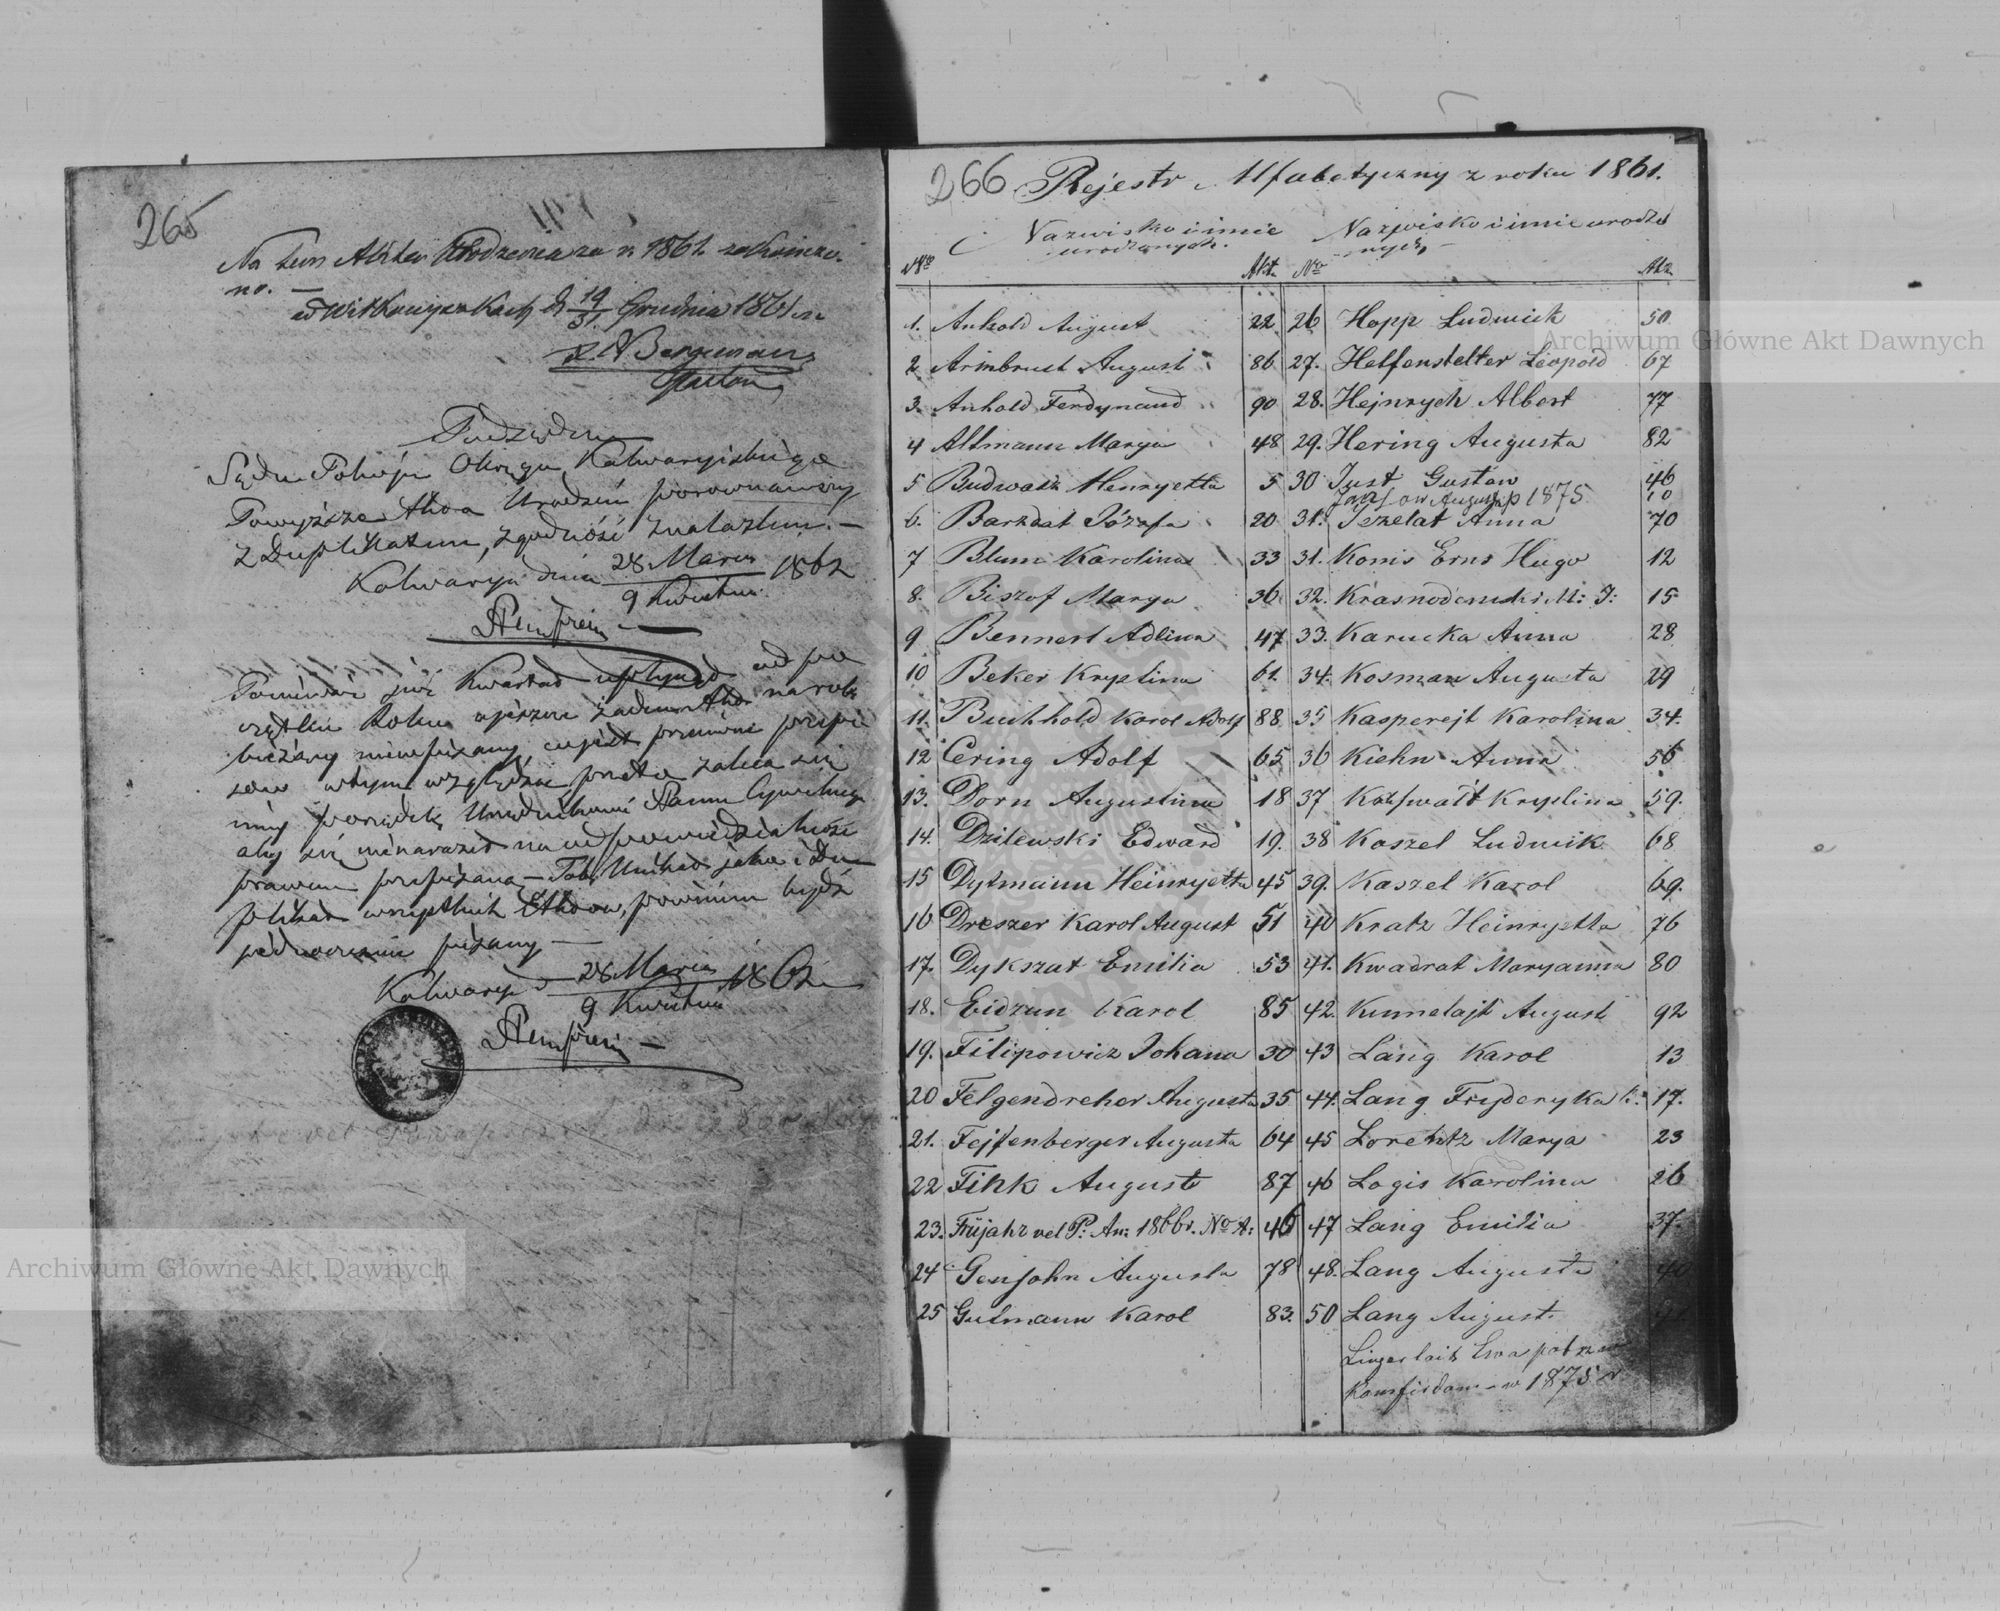 265
Na tem Aktów Urodzenia za r. 1861. zakończo-
no. —
w Wisztynkach d. 19/31. Grudnia 1861 r.
X. A Bergmann
Pastor
Podsędek
Sądu Pokoju Okręgu Kalwaryiskiego
Powyższe Akta Urodzeń porównawszy
z Duplikatem, zgodność znalazłem. —
Kalwarya dnia 28 Marca / 9 Kwietnia 1862
Ponieważ już Kwartał upłynął od po
czątku Roku a jeszcze żaden Akt na rok
bieżący niewpisany, co jest przeciwne przepi
som w tym względzie, przeto zaleca się
aby się nienaraził na odpowiedzialność
prawem przepisaną — Tak Unikat jako i Du
plikat wszystkich Aktów, powinien bydź
jednocześnie pisany —
Kalwarya d. 28 Marca / 9 Kwietnia 1862
266 Rejestr Alfabetyczny z roku 1861.
Nazwisko i imie urodzonych.
Nazwisko i imie urodzo
nych
Nro Akt. No Akt
1. Anhold August 22
2 Armbrust August 86
3. Anhold Ferdynand 90
4 Altmann Marya 48
5 Budwasz Henryetta 5
6. Barzdat Józefa 20
7 Blum Karolina 33
8. Biszof Marya 36
9 Bennert Adlina 47
10 Beker Krystina 61.
11. Buchhold Karol Adolf 88
12 Cering Adolf 65
13. Dorn Augustina 18
14. Dzilewski Edward 19.
15 Dytmann Heinryetta 45
16 Dreszer Karol August 51
17. Dykszat Emilia 53
18. Eidzun Karol 85
19. Filipowicz Johana 30
20 Felgendreher Augusta 35
21. Fejfenberger Augusta 64
22 Fihk August 87
23. Früjahr vel P: An: 1866 r. No A: 46
24 Genjohn Augusta 78
25 Gutmann Karol 83.
26 Hopp Ludwik 50
27. Helfenstelter Leopold 67
28. Hejnrych Albert 77
29. Hering Augusta 82
30 Just Gustaw 46
1875 10
31. Jezelat Anna 70
31. Konis Erns Hugo 12
32. Krasnodemski M: J: 15
33. Karucka Anna 28
34. Kosman Augusta 29
35 Kasperejt Karolina 34.
36 Kiehn Anna 56
37 Krystina 59.
38 Koszel Ludwik 68
39. Kaszel Karol 69.
40 Kratz Heinryetta 76
41. Kwadrat Maryanna 80
42. Kummetajt August 92
43 Lang Karol 13
44. Lang Fryderyka 17.
45 Lorentz Marya 23
46 Logis Karolina 26
47 Lang Emilia 37.
48. Lang Augusta 40
50 Lang August
Lingerlait Ewa patrz w
w 1875 r
Archiwum Główne Akt Dawnych
Archiwum Główne Akt Dawnych